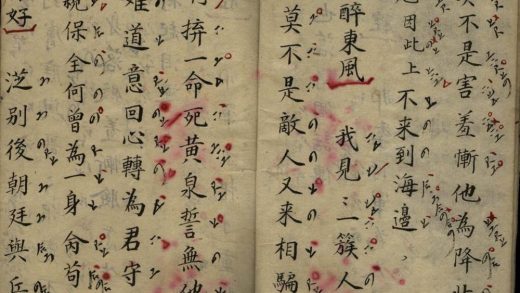 不是害羞慚他為降
因此上不来到海邊
醉東風 我見簇人
莫不是敵人又来相騙
拚一命死黃泉誓無他
難道意回心轉為君守
保全何曾為一身苟
好 別後朝廷與兵